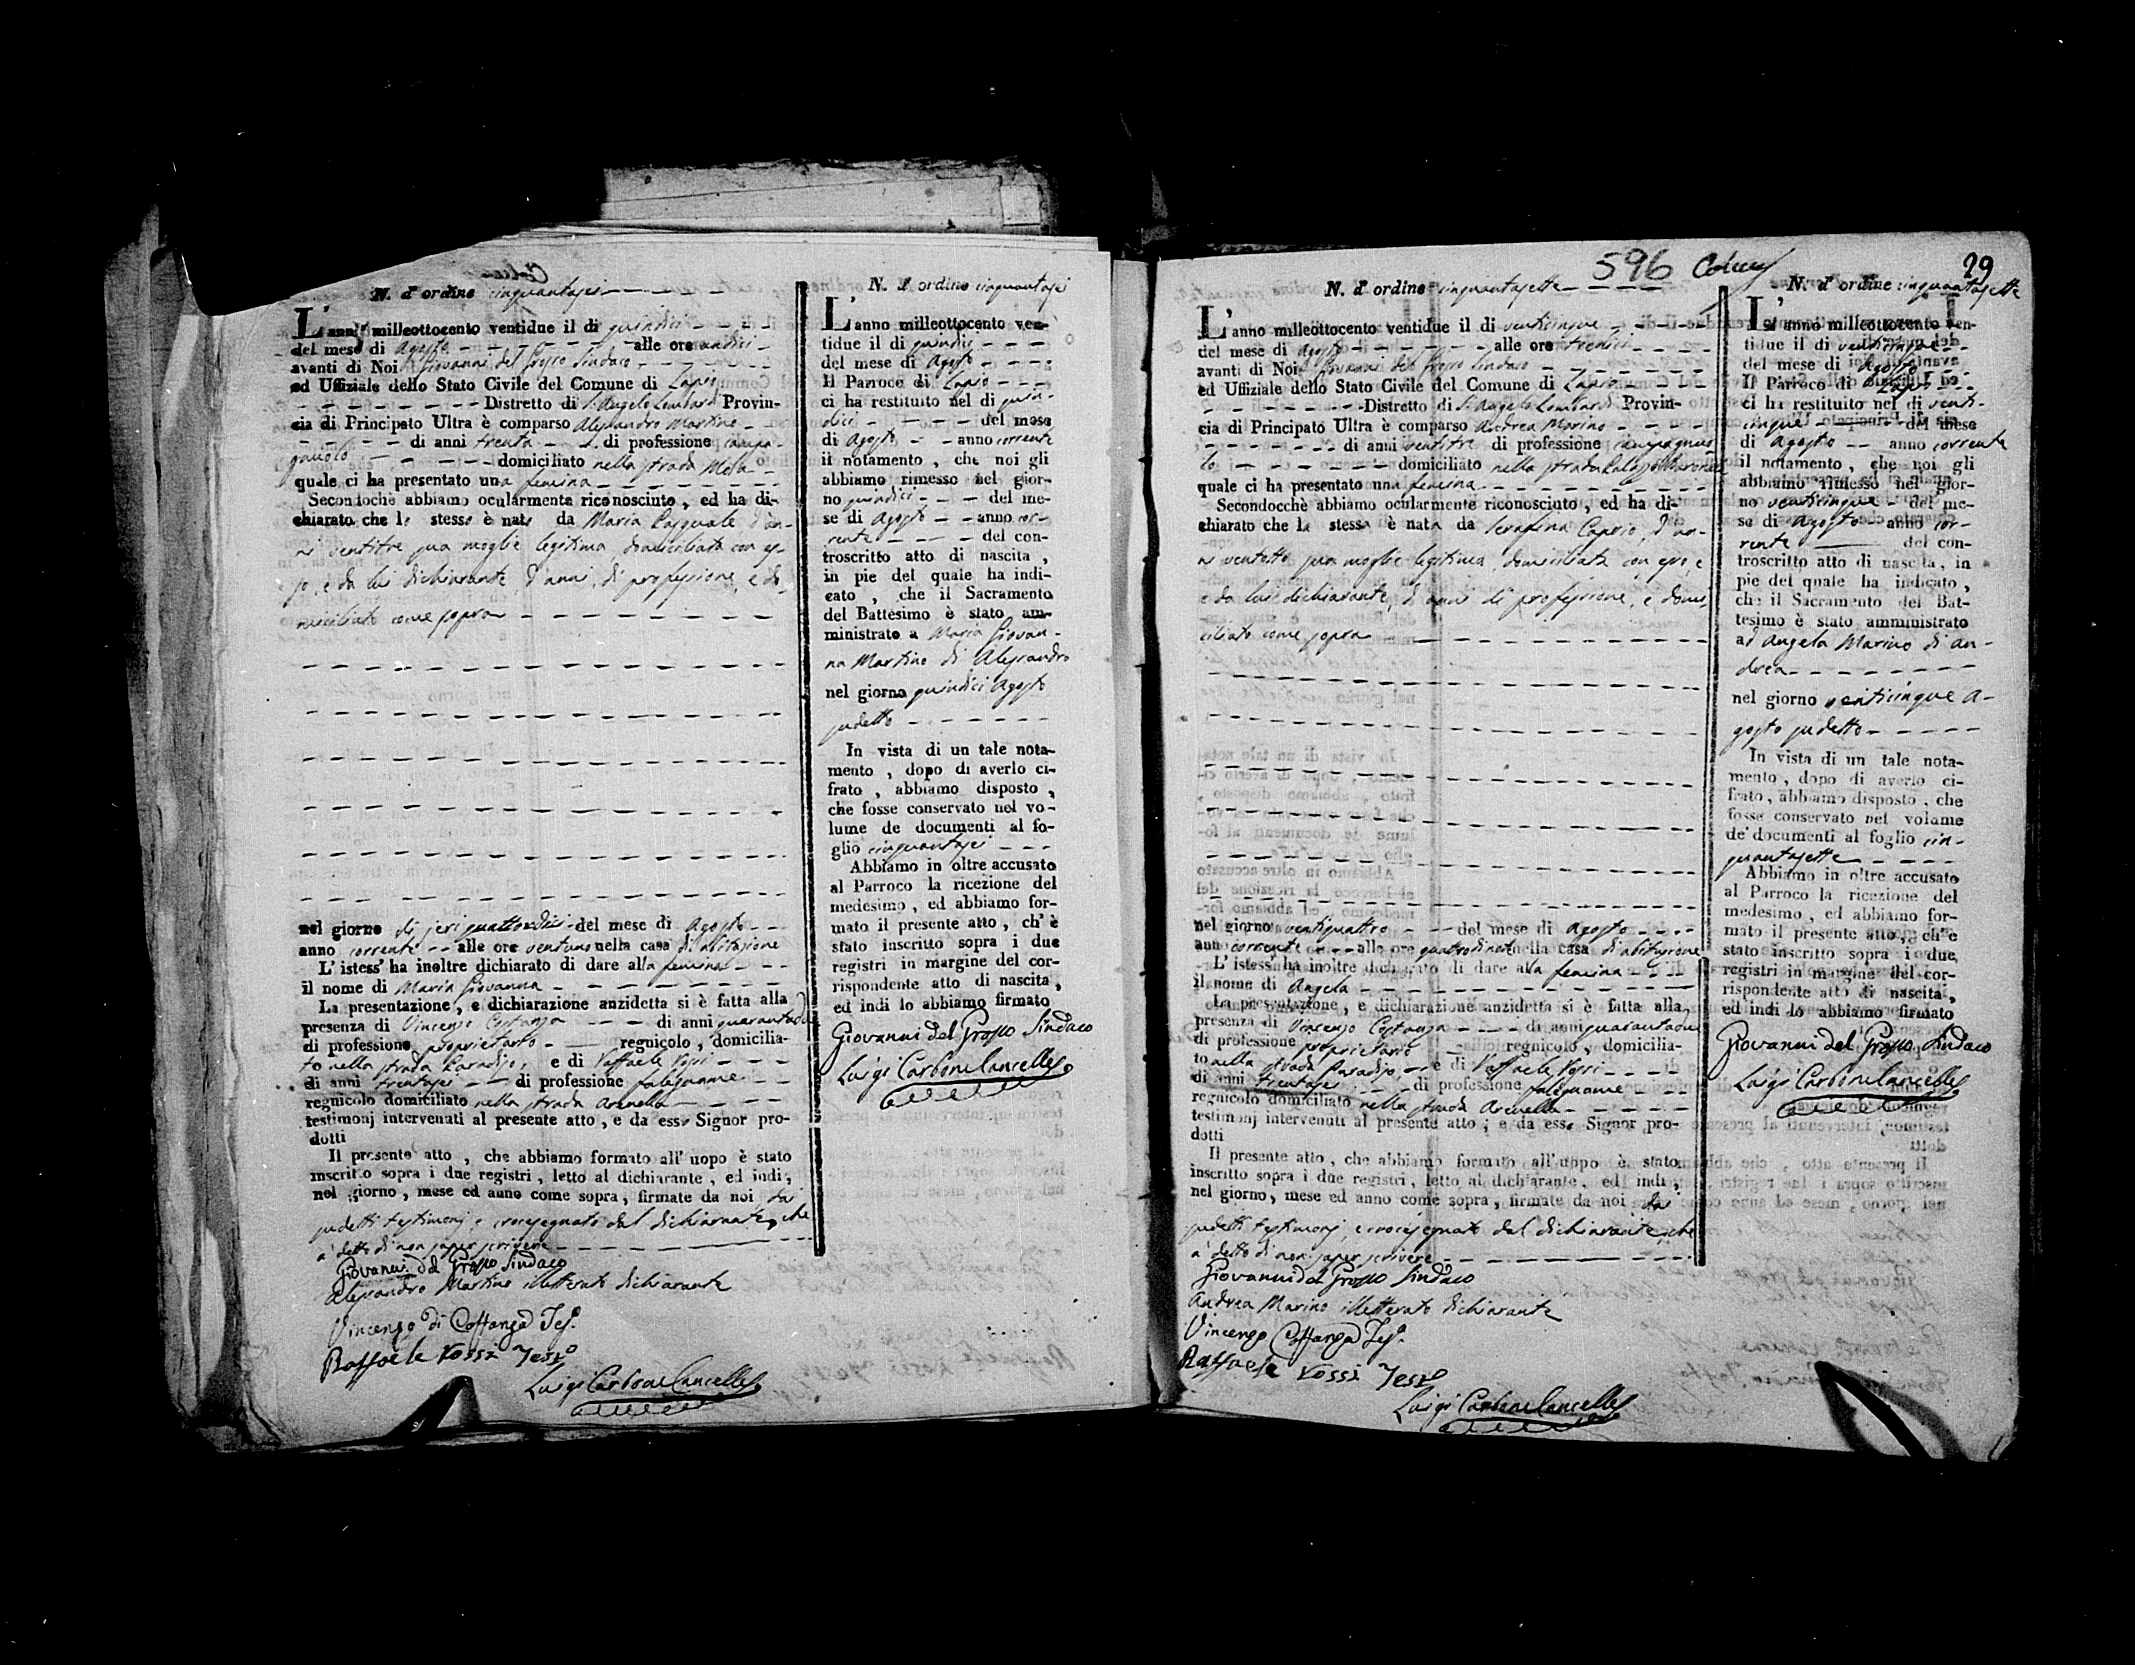 N. d' ordine cinquantasei
L'anno milleottocento ventidue il di quindici
del mese di Agosto alle ore undici
avanti di Noi Giovanni del Grosso Sindaco
ed Uffiziale dello Stato Civile del Comune di Lapio
Distretto di S. Angelo Lombardi Provin-
cia di Principato Ultra è comparso Alesandro Martino
di anni trenta di professione campa-
gnuolo domiciliato nella strada
quale ci ha presentato una femina
Secondochè abbiamo ocularmente riconosciuto, ed ha di-
chiarato che la stessa è nata da Maria Pasquale d'an-
ni ventitre sua moglie legitima, domiciliata con es-
so, e da lui dichiarante, d'anni, di professione, e do-
miciliato come sopra
nel giorno di jeri quattordici del mese di Agosto
anno corrente alle ore ventuno nella casa di abitazione
L' istess' ha inoltre dichiarato di dare alla femina
il nome di Maria Giovanna
La presentazione, e dichiarazione anzidetta si è fatta alla
presenza di Vincenzo Costanza di anni quarantadue
di professione proprietario regnicolo, domicilia-
to nella strada Paradiso, e di Raffaele Rossi
di anni trentasei di professione falegname
regnicolo domiciliato nella strada Arenella
testimonj intervenuti al presente atto, e da esso Signor pro-
dotti
Il presente atto, che abbiamo formato all' uopo è stato
inscritto sopra i due registri, letto al dichiarante, ed indi,
nel giorno, mese ed anno come sopra, firmate da noi dai
sudetti testimonj, e crocesegnato dal dichiarante, che
a' detto di non saper scrivere
Giovanni del Grosso Sindaco
Alesandro Martino illetterato dichiarante
Vincenzo di Costanza Tes.º
Raffaele Rossi Testº
Luigi Carbone Cancelle
N. d' ordine cinquantasei
L'anno milleottocento ven-
tidue il di quindici
del mese di Agosto
Il Parroco di Lapio
ci ha restituito nel di quin-
dici del mese
di Agosto anno corrente
il notamento, che noi gli
abbiamo rimesso nel gior-
no quindici del me-
se di Agosto anno cor-
rente del con-
troscritto atto di nascita,
in pie del quale ha indi-
cato, che il Sacramento
del Battesimo è stato am-
ministrato a Maria Giovan-
na Martino di Alesandro
nel giorno quindici Agosto
sudetto
In vista di un tale nota-
mento, dopo di averlo ci-
frato, abbiamo disposto,
che fosse conservato nel vo-
lume de documenti al fo-
glio cinquantasei
Abbiamo in oltre accusato
al Parroco la ricezione del
medesimo, ed abbiamo for-
mato il presente atto, ch' è
stato inscritto sopra i due
registri in margine del cor-
rispondente atto di nascita,
ed indi lo abbiamo firmato
Giovanni del Grosso Sindaco
Luigi Carbone Cancelle
596
29
N. d' ordine cinquantasette
L'anno milleottocento ventidue il di venticinque
del mese di Agosto alle ore tredici
avanti di Noi Giovanni del Grosso Sindaco
ed Uffiziale dello Stato Civile del Comune di Lapio
Distretto di S. Angelo Lombardi Provin-
cia di Principato Ultra è comparso Andrea Marino
di anni ventitre di professione campagnuo
lo domiciliato nella strada
quale ci ha presentato una femina
Secondocchè abbiamo ocularmente riconosciuto, ed ha di-
chiarato che la stessa è nata da Serafina Caprio, d'an-
ni ventotto sua moglie legitima, domiciliata con esso, e
e da lui dichiarante, d'anni di professione, e domi,
ciliato come sopra
nel giorno ventiquattro del mese di Agosto
anno corrente alle ore quattordici nella casa di abitazione
L' istess' ha inoltre dichiarato di dare alla femina
il nome di Angela
La presentazione, e dichiarazione anzidetta si è fatta alla
presenza di Vincenzo Costanza di anni quarantadue
di professione proprietario regnicolo, domicilia-
to nella strada Paradiso, e di Raffaele Rossi
di anni trentasei di professione falegname
regnicolo domiciliato nella strada Arenella
testimonj intervenuti al presente atto; e da esso Signor pro-
dotti
Il presente atto, che abbiamo formato all'uopo è stato
inscritto sopra i due registri, letto al dichiarante, ed indi,
nel giorno, mese ed anno come sopra, firmate da noi dai
sudetti testimonj, e crocesegnato dal dichiarante, che
a' detto di non saper scrivere
Giovanni del Grosso Sindaco
Andrea Marino illetterato dichiarante
Vincenzo Costanza Tesº
Raffaele Rossi Testº
Luigi Carbone Cancelle
N. d' ordine cinquantasette
L' anno milleottocento ven-
tidue il di venticinque
del mese di Agosto
Il Parroco di Lapio
ci ha restituito nel di venti-
cinque del mese
di Agosto anno corrente
il notamento, che noi gli
abbiamo rimesso nel gior-
no venticinque del me-
se di Agosto anno cor-
rente del con-
troscritto atto di nascita, in
pie del quale ha indicato,
che il Sacramento del Bat-
tesimo è stato amministrato
ad Angela Marino di An-
drea
nel giorno venticinque A-
gosto sudetto
In vista di un tale nota-
mento, dopo di averlo ci-
frato, abbiamo disposto, che
fosse conservato nel volume
de' documenti al foglio cin-
quantasette
Abbiamo in oltre accusato
al Parroco la ricezione del
medesimo, ed abbiamo for-
mato il presente atto, ch' e
stato inscritto sopra i due
registri in margine del cor-
rispondente atto di nascita,
ed indi lo abbiamo firmato
Giovanni del Grosso Sindaco
Luigi Carbone Cancelle